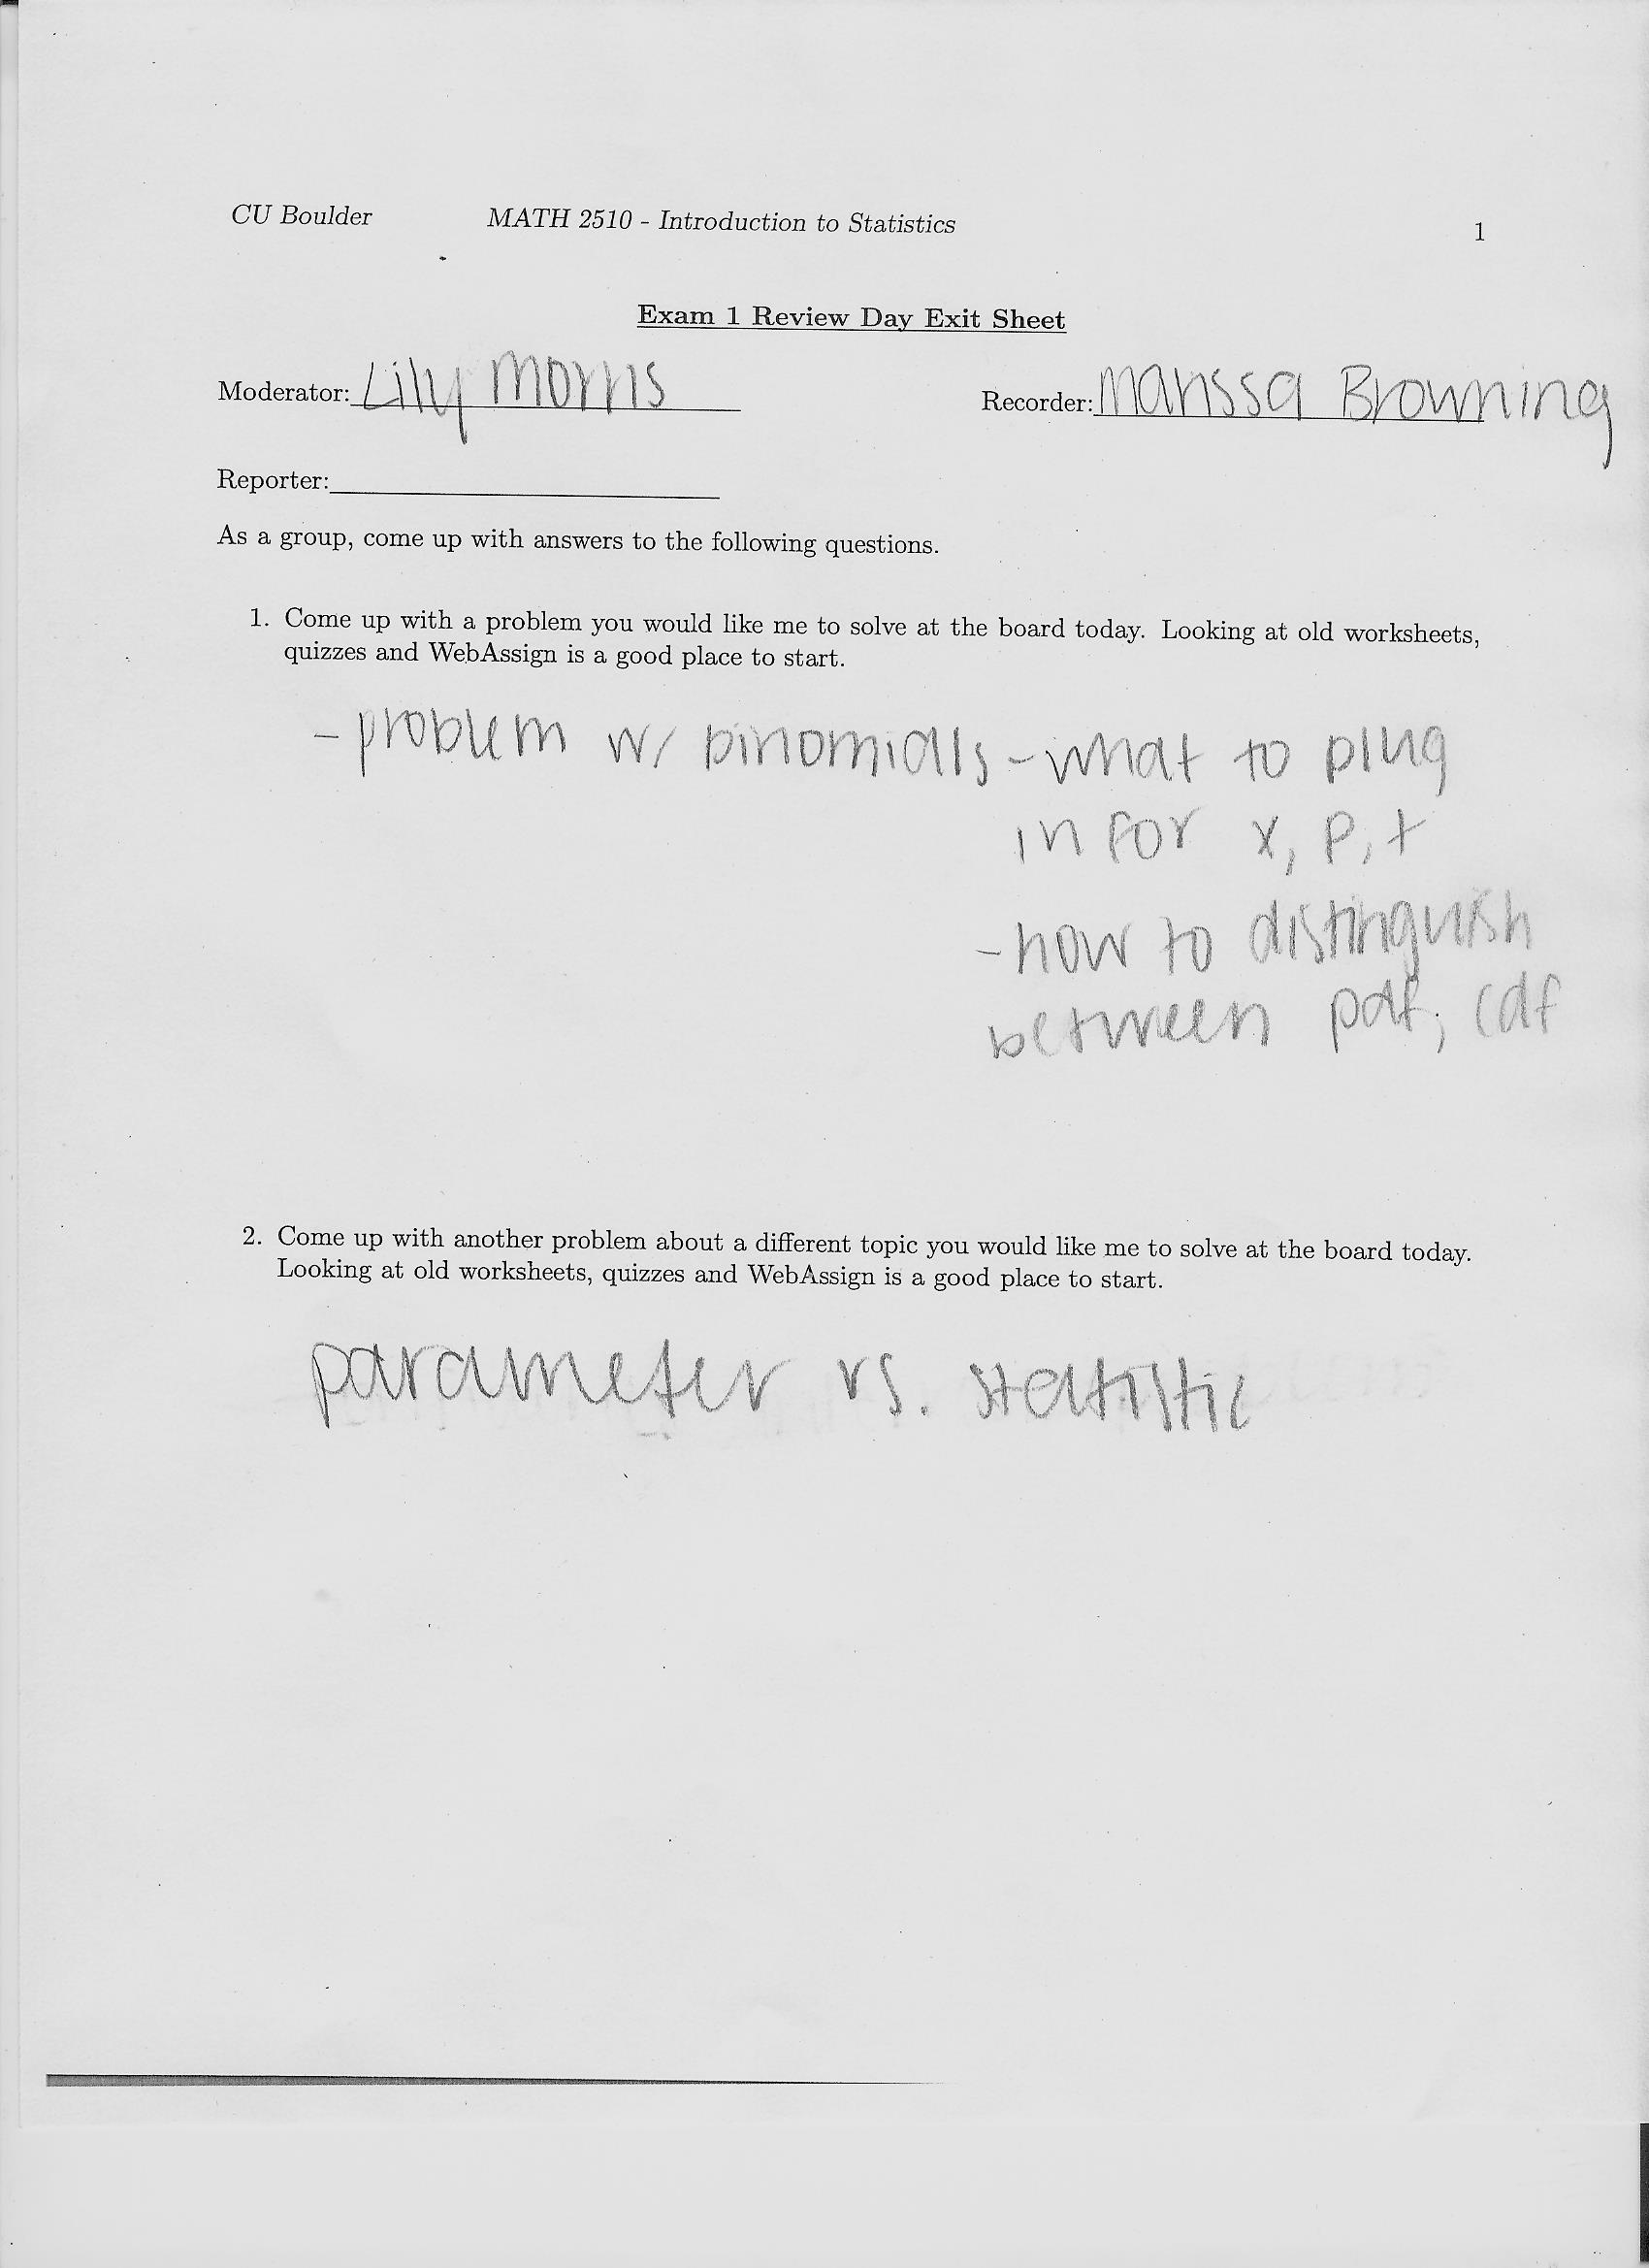 CU Boulder MATH 2510 - Introduction to Statistics 1
Exam 1 Review Day Exit Sheet
Moderator: Lily Morris Recorder: Marissa Browning
Reporter:
As a group, come up with answers to the following questions.
1. Come up with a problem you would like me to solve at the board today. Looking at old worksheets,
quizzes and WebAssign is a good place to start.
- problem w/ binomialls - what to plug
in for x, p, t
- how to distinguish
between pdf, cdf
2. Come up with another problem about a different topic you would like me to solve at the board today.
Looking at old worksheets, quizzes and WebAssign is a good place to start.
parameter vs. statistic